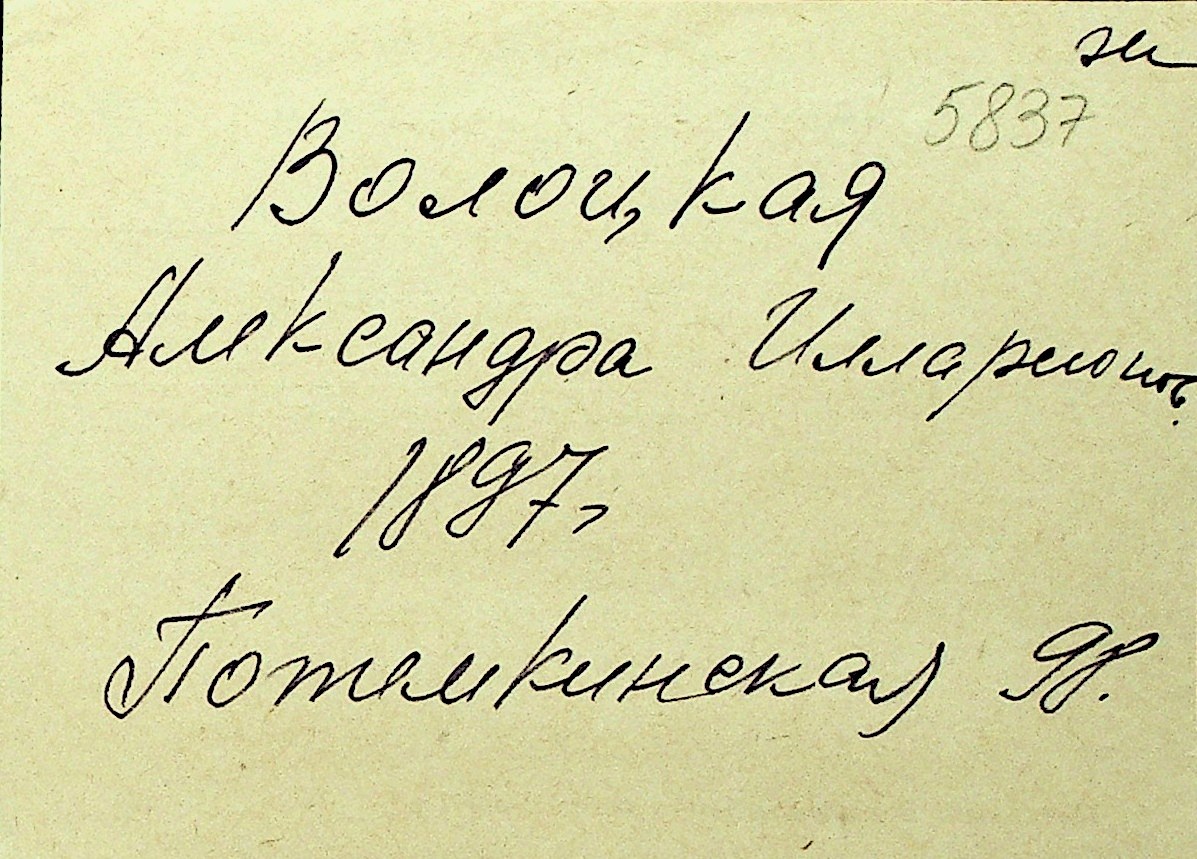 5837
Волоцкая
Александра Илларионов.
1897г
Потемкинская 98.